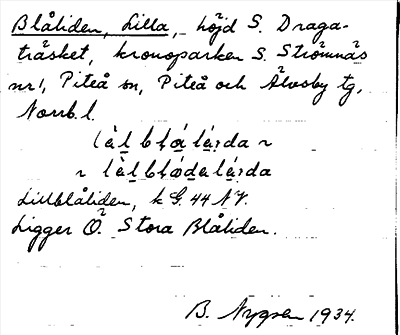 Blåliden, Lilla, höjd S. Draga-
träsket, kronoparken S. Strömnäs
nr 1, Piteå sn, Piteå och Älvsby tg,
Norrb. l.
Lillblåliden, k G. 44 NV.
Ligger Ö. Stora Blåliden.
B. Nygren 1934.